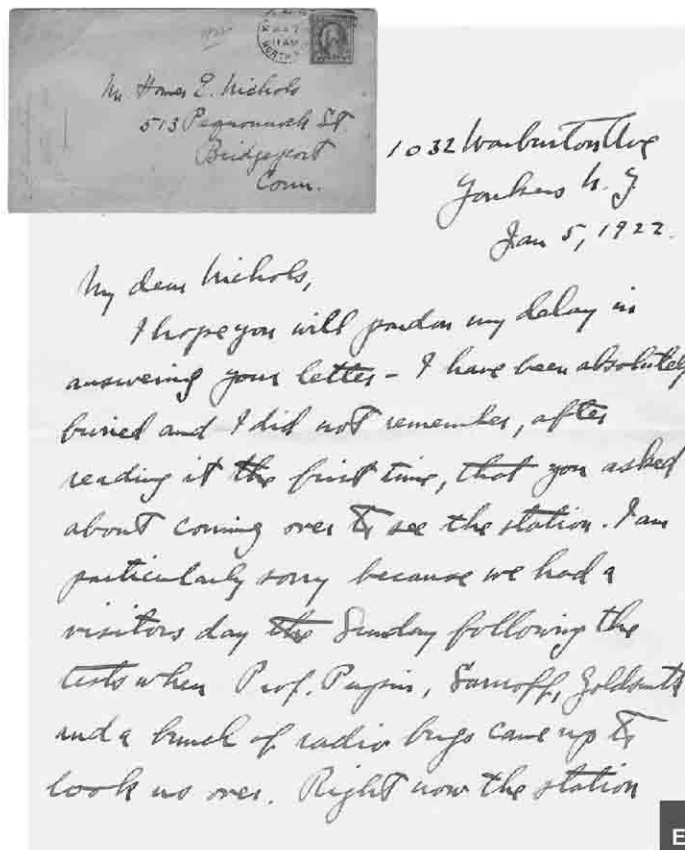 11 AM
NORTH
Mr Homer E. Nichols
513 Pequonnock St
Bridgeport
Conn.
1032 Warburton Ave
Yonkers N. Y.
Jan 5, 1922.
My dear Nichols,
I hope you will pardon my delay in
answering your letter - I have been absolutely
buried and I did not remember, after
reading it the first time, that you asked
about coming over to see the station. I am
particularly sorry because we had a
visitors day the Sunday following the
tests when Prof. Pupin, Sarnoff, Goldsmith
and a bunch of radio bugs came up to
look us over. Right now the station
E